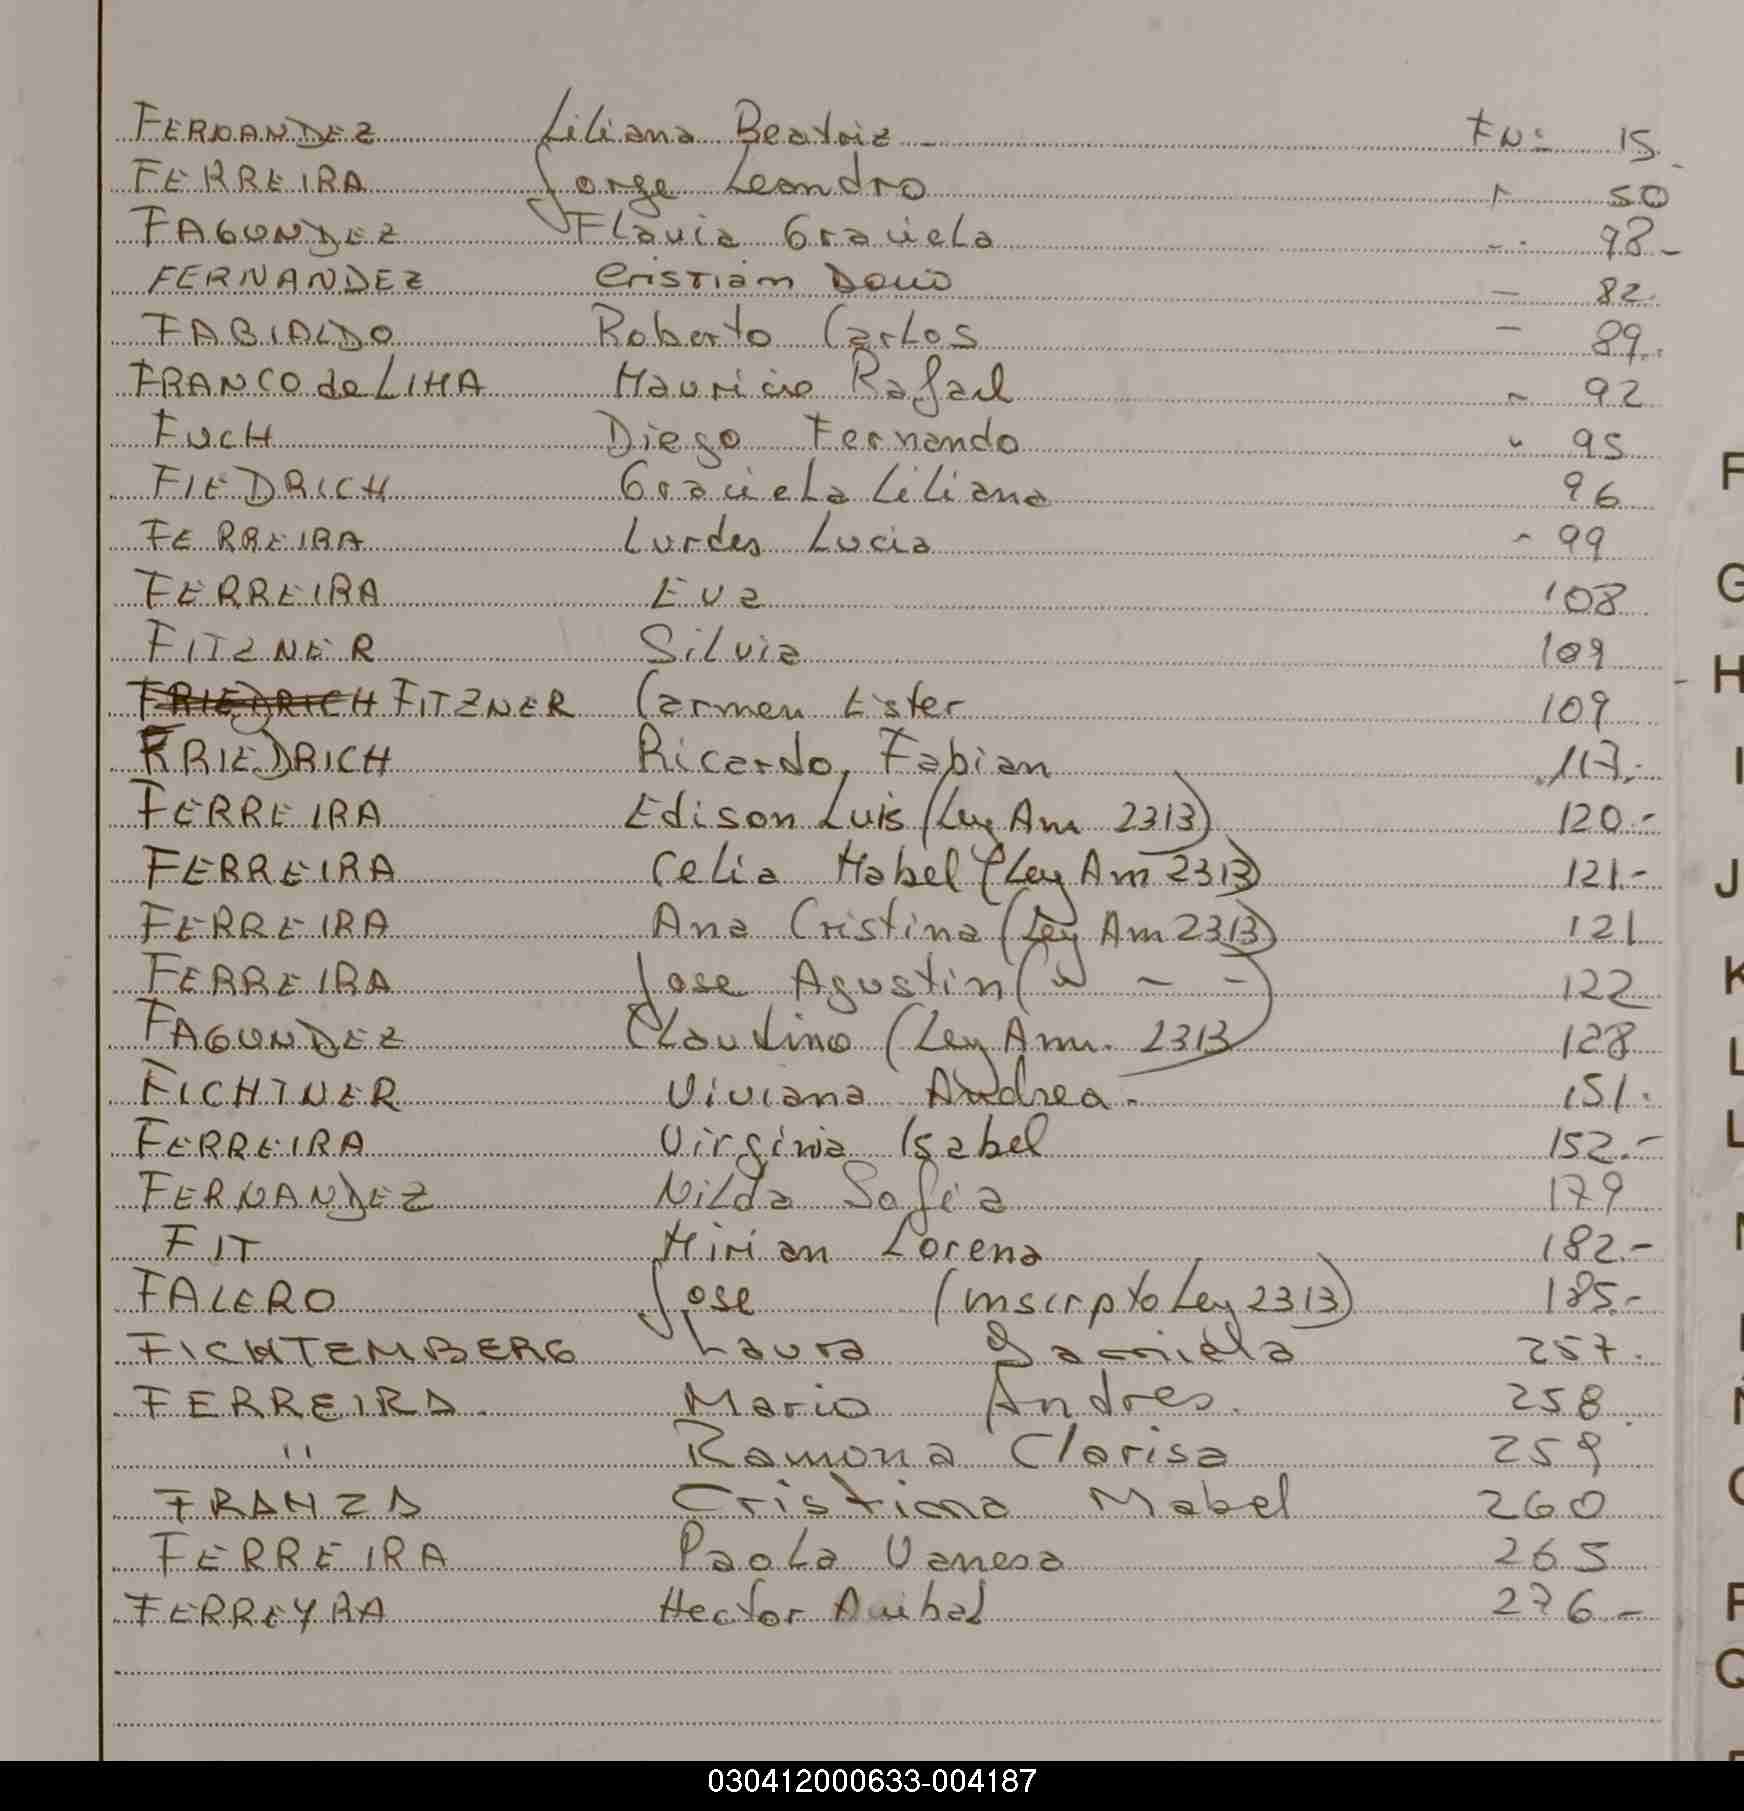 FERNANDEZ Liliana Beatriz - Fº Nº 15
FERREIRA Jorge Leandro " 50
FAGUNDEZ Flavia Graciela " 78-
FERNANDEZ Cristian Dario - 82.
FABIALDO Roberto Carlos - 89.
FRANCO de LIMA Mauricio Rafael " 92
FUCH Diego Fernando " 95
FIEDRICH Graciela Liliana 96
FERREIRA Lurdes Lucia " 99
FERREIRA Eva 108
FITZNER Silvia 109
FRIEDRICH FITZNER Carmen Ester 109
FRIEDRICH Ricardo, Fabian 117.-
FERREIRA Edison Luis (Ley Am 2313) 120.-
FERREIRA Celia Mabel (Ley Am 2313) 121.-
FERREIRA Ana Cristina (Ley Am 2313) 121
FERREIRA Jose Agustin (" - -) 122
FAGUNDEZ Claudino (Ley Amn. 2313) 128
FICHTNER Viviana Andrea. 151.
FERREIRA Virginia Isabel 152.-
FERNANDEZ Nilda Sofia 179
FIT Mirian Lorena 182.-
FALERO Jose (Inscrpto Ley 2313) 185.-
FICHTEMBERG Laura 257.
FERREIRA. Mario Andres. 258
" Ramona Clarisa 259
FRANZA Cristina Mabel 260
FERREIRA Paola Vanesa 265
FERREYRA Hector Anibal 276.-
F
G
H
I
J
K
L
L
M
N
Ñ
O
P
Q
030412000633-004187